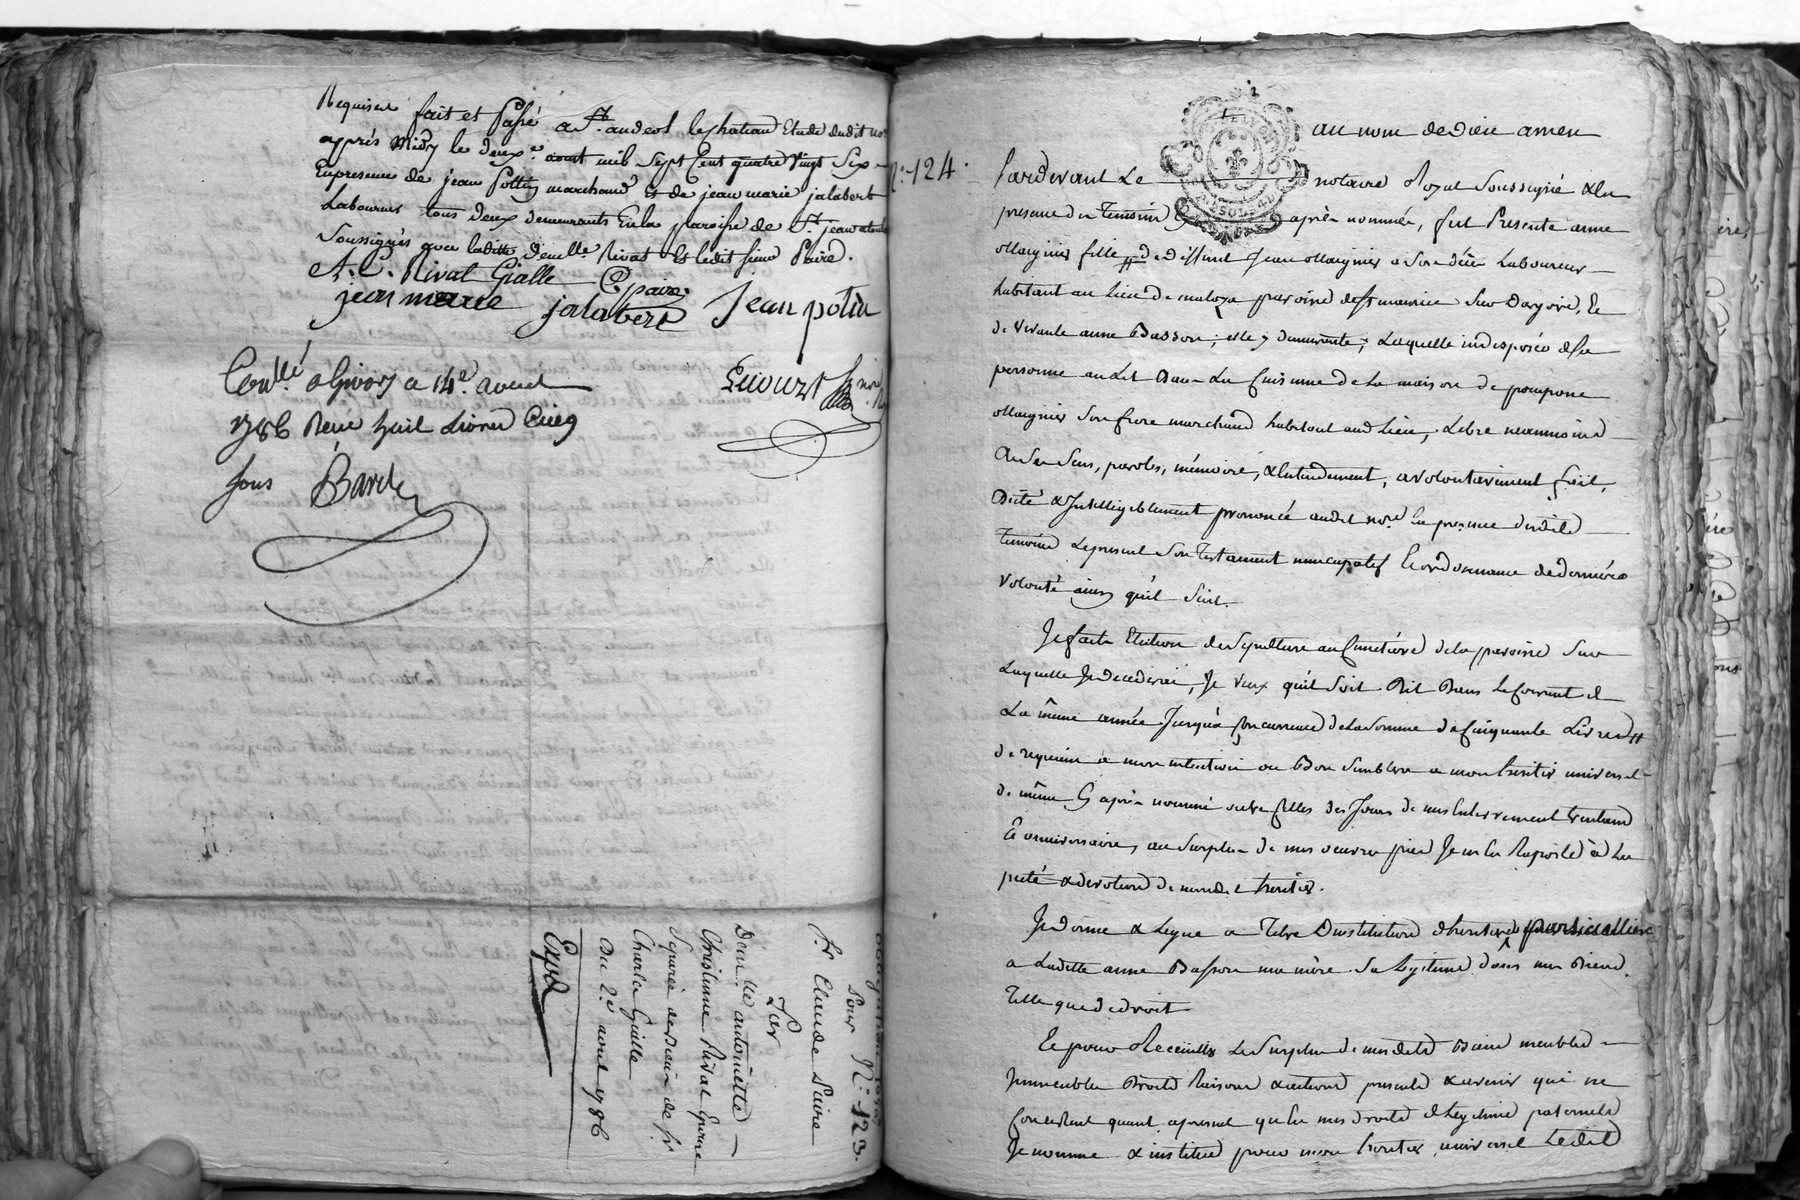 Requise fait et Passé a St. andeol lechateau Etude dudit no.re
apprés Midy le deux.e aoust mil Sept Cent quatre vingt Six
Enpresence de jean Pottin marchand Et de jean marie jalabert
Laboureur tous deux demeurants En la paroisse de St. jean
Soussignés avec laditte demelle. Rivat Et ledit sieur Paire.
A. C. Rivat Gialle C paire
jean marie jalabert Jean potin
Con.llé a Givors ce 14e. aoust
1786 Reçu huit Livres Cinq
sous Barde
Lecourt no.re
N.o 123.
pour
Sr. Claude Paire
Par
Dem.lle antoinette
Christinne Rivat Epouse
Separée de Biens de Sr.
Charle Gialle
Du 2.e aoust 1786
Expd.
N.o 124.
au nom de dieu amen
Pardevant Le notaire Royal Soussigné & en
presence des Temoins Cy après nommés, fut Presente anne
Maignier fille de deffunt Jean Maignier a Son décès Laboureur
habitant au lieu de paroisse de St maurice Sur Dargoire, &
de Vivante anne Basson, elle y demeurante, Laquelle indisposée de sa
personne au Lit Dans La Cuisinne de La maison de pompone
Maignier Son frere marchand habitant aud Lieu, Libre neanmoins
de Ses Sens, paroles, mémoire, & Entendement, a volontairement fait,
Dicté & Intelligiblement prononcé audit no.re En presence desdits
Temoins Le present Son Testament nuncupatif & ordonnance de derniére
Volonté ainsy qu'il Suit.
Je fait Election de Sepulture au Cimetiére de la paroisse Sur
Laquelle Je decederai, Je Veux qu'il Soit Dit Dans Le Courant de
La même année Jusqu'à Concurrence de la Somme de Cinquante Livres
de requiem à mon intention ou Bon Semblera a mon heritier universel
de même Cy après nommé outre celles des Jours de mes Enterrement trentain
& anniversaire, au Surplus de mes oeuvres pies Je m'en Raporte à La
pieté & devotion de mondit heritier.
Je donne & Legue a Titre D'institution d'heritiere particulliere
a Laditte anne Basson ma mère Sa Legitime dans mes Biens
Telle que de droit
Et pour Recueillir Le Surplus de mesdits Biens meubles
Immeubles Droits Raisons & actions presents & avenir qui ne
Consistent quant apresent qu'En mes droits de Legitime paternels
Je nomme & institue pour mon heritier universel Ledit